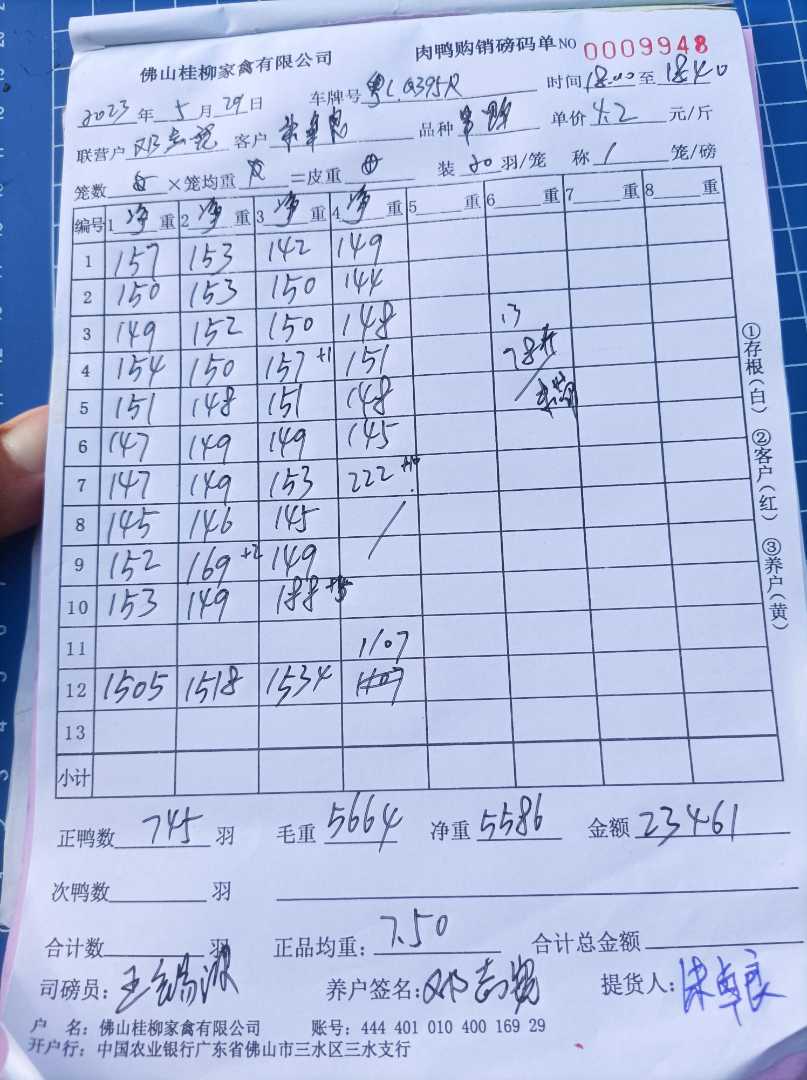 佛山桂柳家禽有限公司 肉鸭购销磅码单 NO 0009948
2023年5月29日 车牌号 粤L.Q395R 时间18:00至1840
联营户 邓志 客户 品种 单价4.2元/斤
笼数 ×笼均重 =皮重 装20羽/笼 称1笼/磅
编号 1净重 2净重 3净重 4净重 5 重 6 重 7 重 8 重
1 157 153 142 149
2 150 153 150 144
3 149 152 150 148 13
4 154 150 157+1 151 78斤
5 151 148 151 148
6 147 149 149 145
7 147 149 153 222
8 145 146 145 /
9 152 169+2 149
10 153 149 188
11 1107
12 1505 1518 1534 1107
13
小计
正鸭数745羽 毛重5664 净重5586 金额23461
次鸭数 羽
合计数 羽 正品均重：7.50 合计总金额
司磅员：王 养户签名：邓志 提货人：
户 名：佛山桂柳家禽有限公司 账号：444 401 010 400 169 29
开户行：中国农业银行广东省佛山市三水区三水支行
①存根（白） ②客户（红） ③养户（黄）